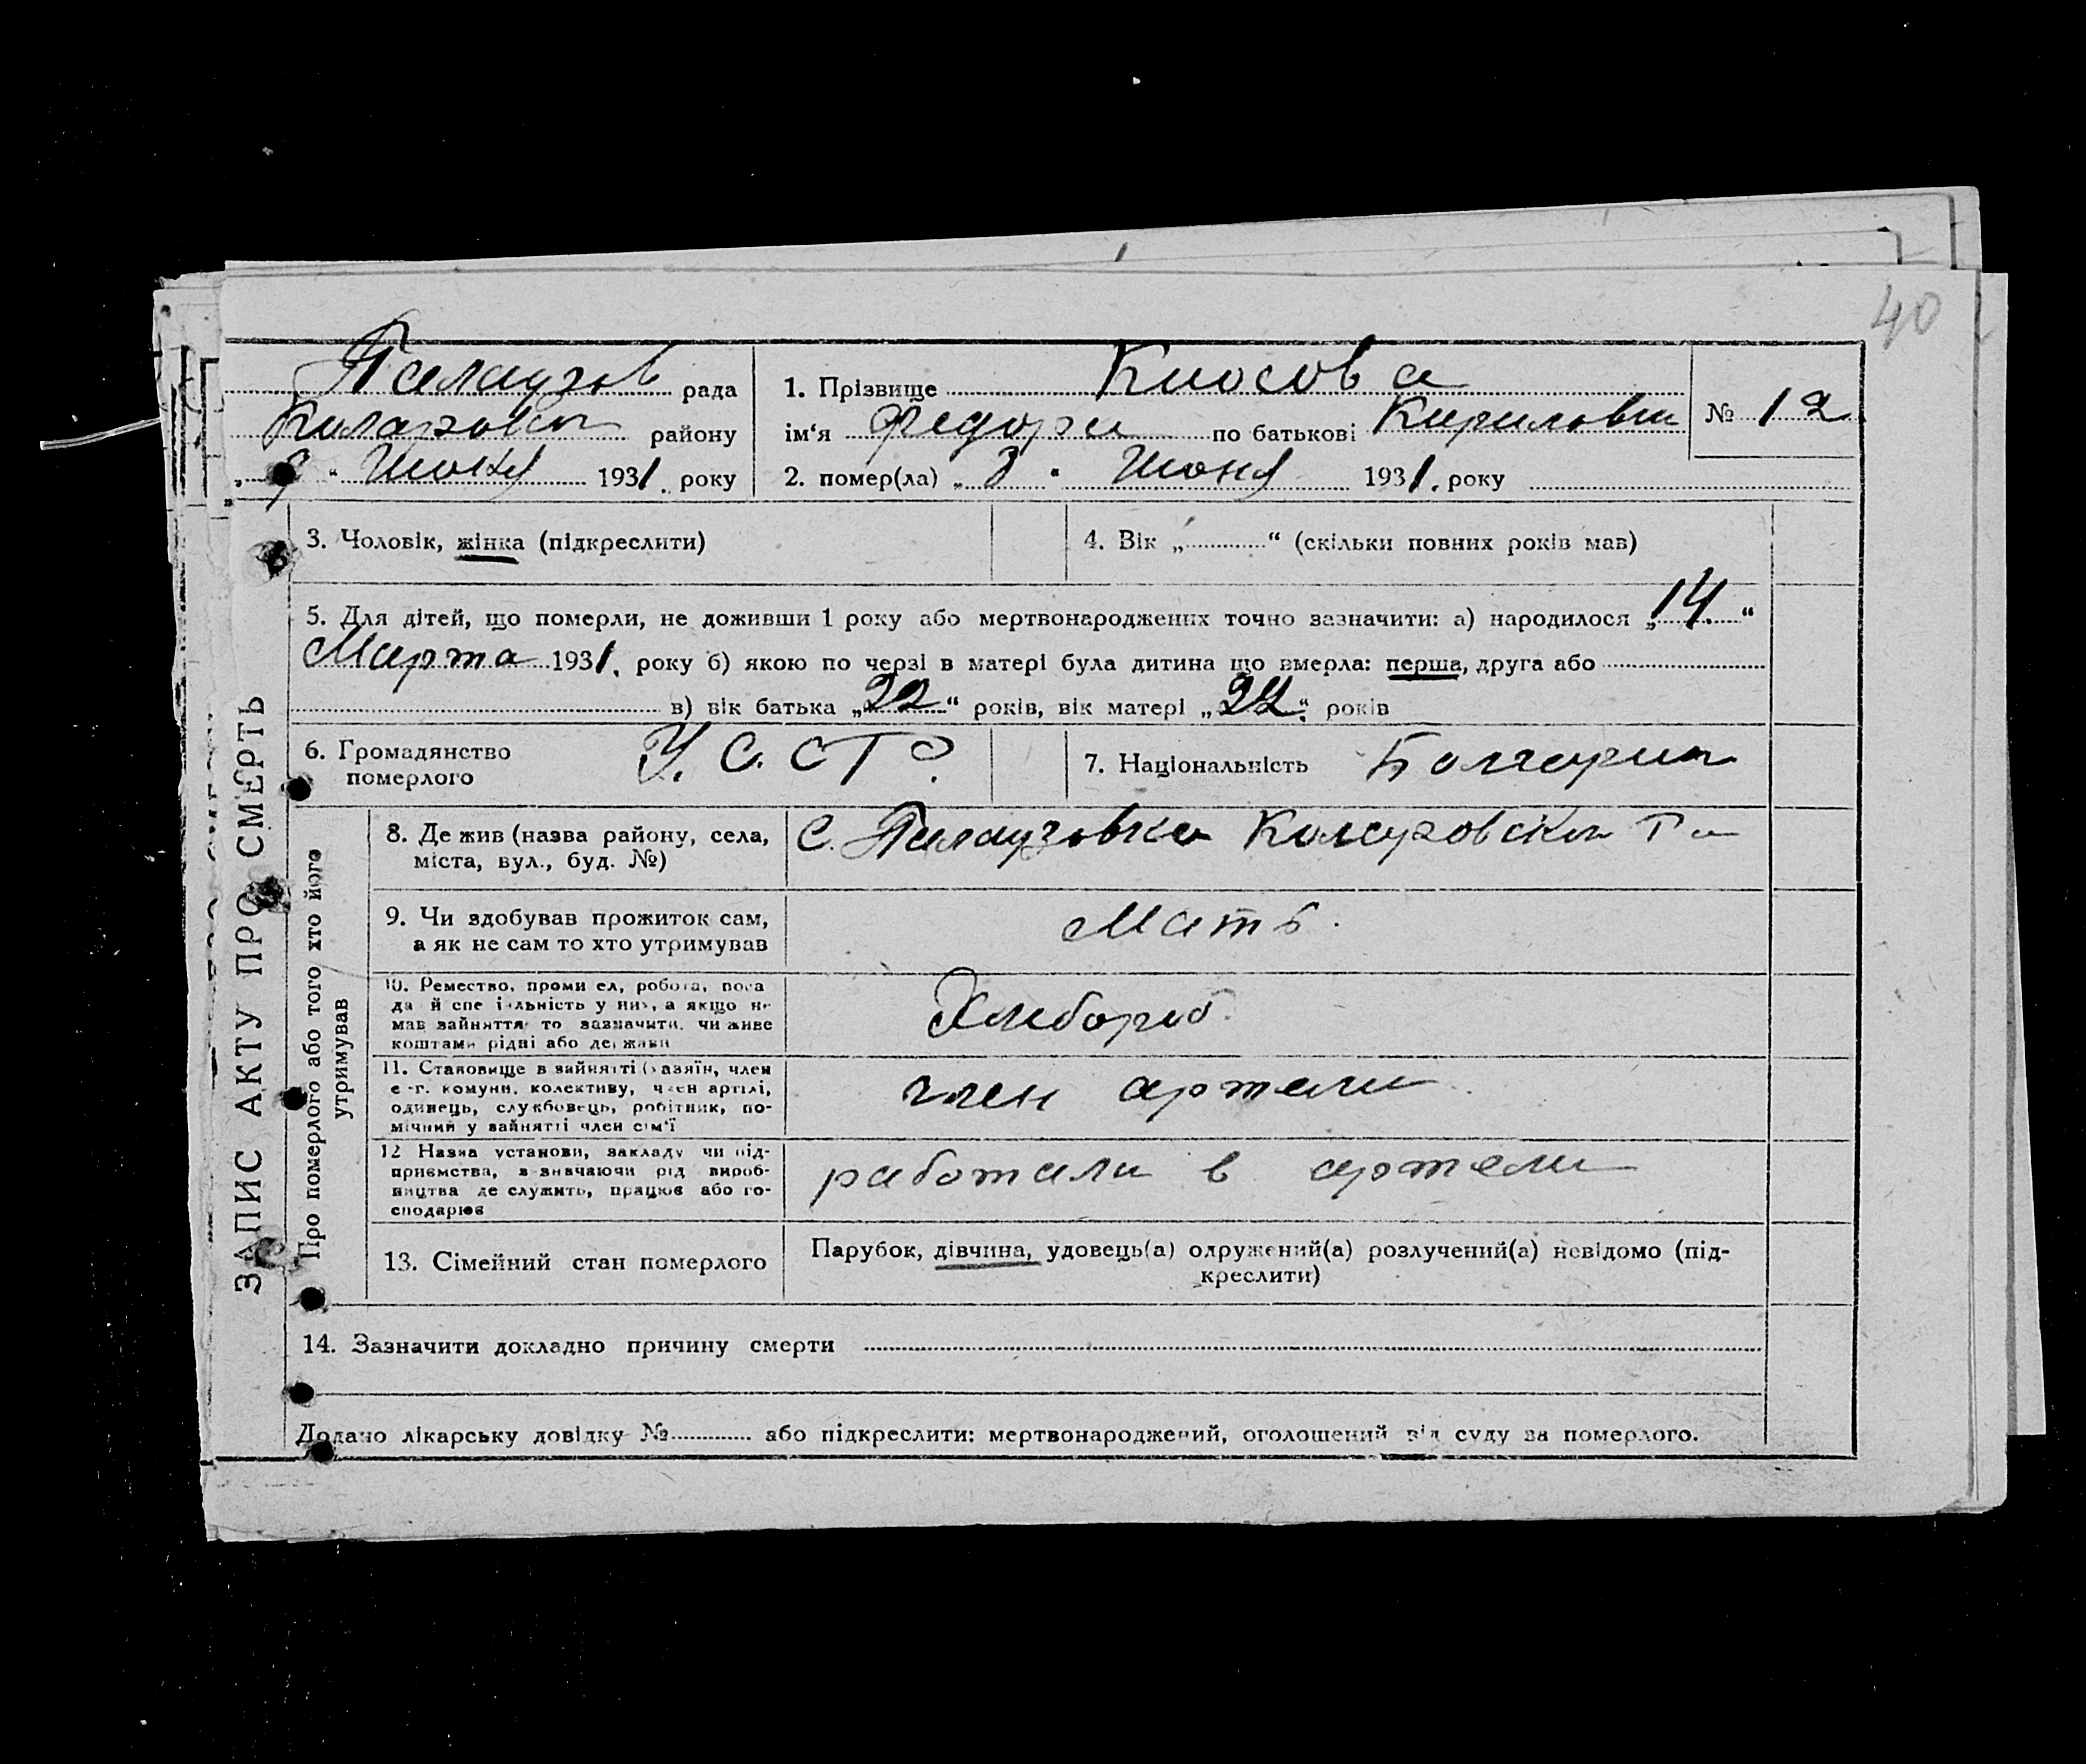 40
Палаузов рада
Коларовск району
" Июня 1931. року
1. Прізвище Киосова
ім'я Федора по батькові Кириловна
№ 12
2. помер(ла) „ 8 " Июня 1931. року
ЗАПИС АКТУ ПРО СМЕРТЬ
3. Чоловік, жінка (підкреслити)
4. Вік „ “ (скільки повних років мав)
5. Для дітей, що померли, не доживши 1 року або мертвонароджених точно зазначити: а) народилося „14.“
Марта 1931. року б) якою по черзі в матері була дитина що вмерла: перша, друга або
в) вік батька „22“ років, вік матері „ “ років
6. Громадянство
померлого
У. С. С Р.
7. Національність Болгарин
Про померлого або того хто його
утримував
8. Де жив (назва району, села,
міста, вул., буд. №)
С. Палаузовка Коларовский Р н
9. Чи здобував прожиток сам,
а як не сам то хто утримував
Мать.
10. Ремество, проми ел, робота, поса
да й спе іальність у них, а якщо не
мав зайняття то зазначити, чи живе
коштами рідні або держави
Хлебороб.
11. Становище в зайнятті (хазяїн, член
с.-г. комуни, колективу, член артілі,
одинець, службовець, робітник, по-
мічний у зайнятті член сім'ї
член артели.
12 Назва установи, закладу чи під-
приємства, зазначаючи рід вироб-
ництва де служить, працює або го-
сподарює
работали в артели
13. Сімейний стан померлого
Парубок, дівчина, удовець(а) одружений(а) розлучений(а) невідомо (під-
креслити)
14. Зазначити докладно причину смерти
Додано лікарську довідку № або підкреслити: мертвонароджений, оголошений від суду за померлого.